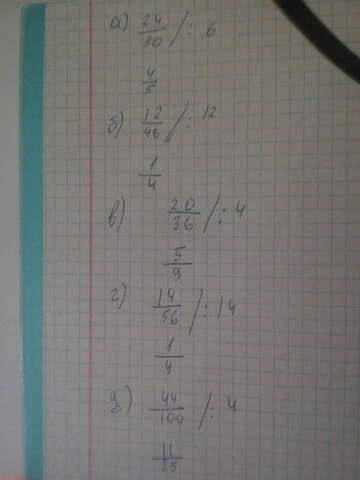 а) 24/30 /: 6
4/5
б) 12/48 /: 12
1/4
в) 20/36 /: 4
5/9
г) 14/56 /: 14
1/4
д) 44/100 /: 4
11/25